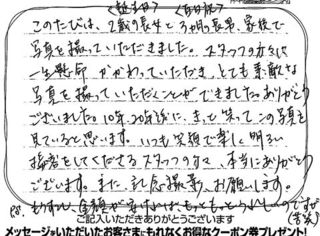 このたびは、2歳の長女と7ヶ月の長男、家族で
写真を撮っていただきました。スタッフの方々に
一生懸命 かかわっていただき、とても素敵な
写真を撮っていただくことができました。ありがとう
ございました。10年、20年後に、きっと笑ってこの写真を
見ていると思います。いつも笑顔で楽しく明るい
接客をしてくださるスタッフの方々、本当にありがとう
ございます。また、記念撮影、お願いします。
P.S. もう少し、金額が安ければ、もっともっとうれしいのですが
(苦笑)
ご記入いただきありがとうございます
メッセージをいただいたお客さまにもれなくお得なクーポン券プレゼント!